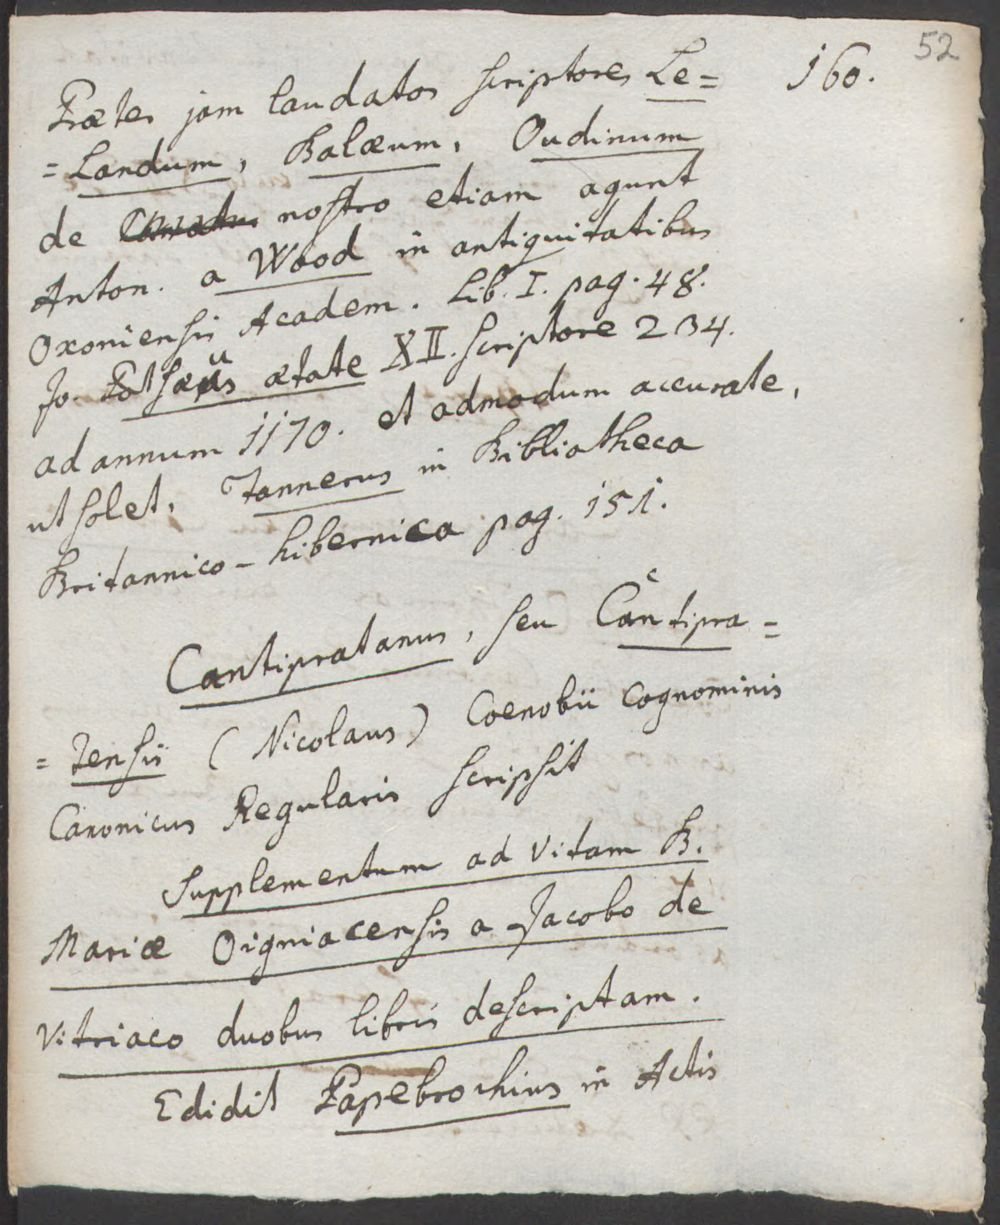 52
160.
Præter jam laudatos scriptores Le=
=Landum, Balæum, Oudinum
de nostro etiam agunt
Anton. a Wood in antiquitatibus
Oxoniensis Academ. Lib. I. pag. 48.
Jo. Pitsæus ætate XII. scriptore 234.
ad annum 1170. et admodum accurate,
ut solet, Tannerus in Bibliotheca
Britannico-hibernica pag. 151.
Cantipratanus, seu Cantipra=
=tensis (Nicolaus) Coenobii cognominis
Canonicus Regularis scripsit
Supplementum ad Vitam B.
Mariæ Oigniacensis a Jacobo de
Vitriaco duobus libris descriptam.
Edidit Papebrochius in Actis